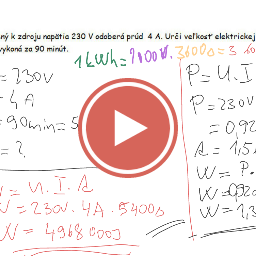 ný k zdroju napätia 230 V odoberá prúd 4 A. Urči veľkosť elektrickej
vykoná za 90 minút.
1kWh = 1000W . 3600s = 3
= 230V
= 4A
= 90min = 5
= ?
W = U . I . t
W = 230V . 4A . 5400s
W = 4968000J
P = U . I
P = 230V
= 0,92
t = 1,5
W = P .
W = 0,92
W = 1,3